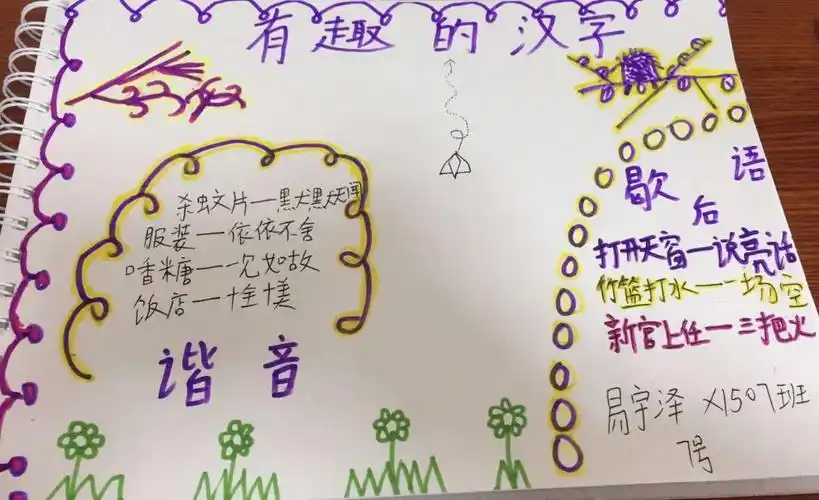 有趣的汉字
杀蚊片—默默无闻
服装—依依不舍
口香糖—一见如故
饭店—十全十美
谐音
歇后语
打开天窗—说亮话
竹篮打水—一场空
新官上任—三把火
易宇泽 X1507班
7号